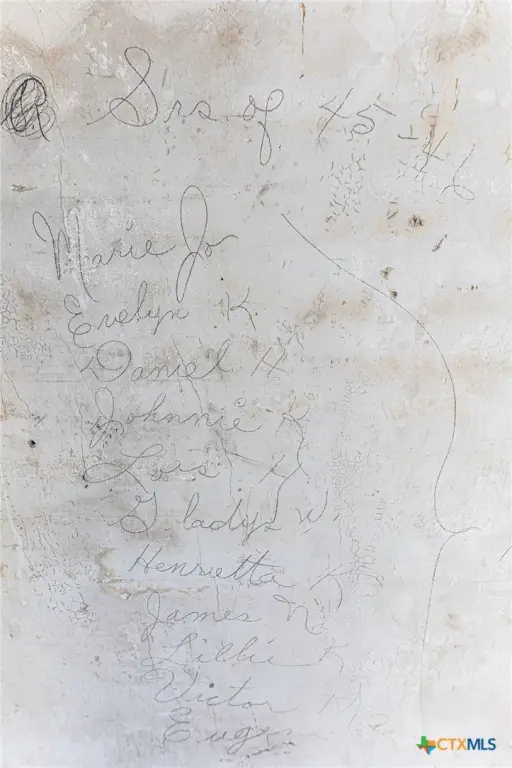 Srs of 45-46
Marie Jo
Evelyn K.
Daniel H
Johnnie K
Lois H
Gladys W.
Henrietta K
James N
Lillie K
Victor
Eug
CTXMLS